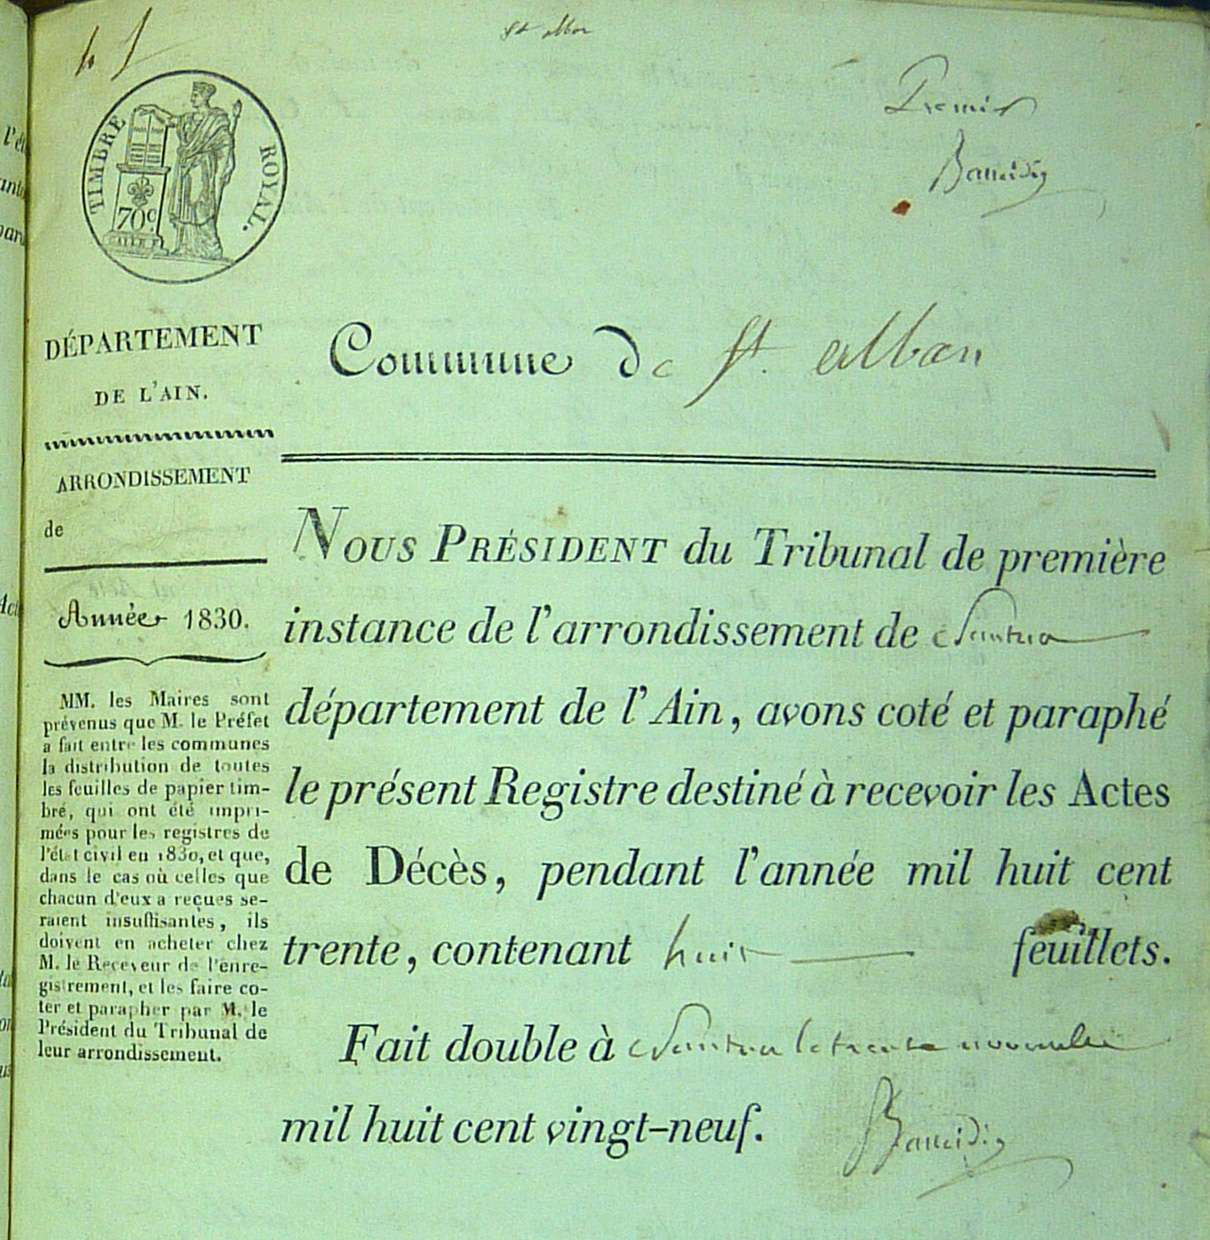 St Alban
Premier
TIMBRE ROYAL.
70c
DÉPARTEMENT
DE L'AIN.
Commune de St. Alban
ARRONDISSEMENT
de
Année 1830.
MM. les Maires sont
prévenus que M. le Préfet
a fait entre les communes
la distribution de toutes
les feuilles de papier tim-
bré, qui ont été impri-
mées pour les registres de
l'état civil en 1830, et que,
dans le cas où celles que
chacun d'eux a reçues se-
raient insuffisantes, ils
doivent en acheter chez
M. le Receveur de l'enre-
gistrement, et les faire co-
ter et parapher par M. le
Président du Tribunal de
leur arrondissement.
NOUS PRÉSIDENT du Tribunal de première
instance de l'arrondissement de Nantua
département de l'Ain, avons coté et paraphé
le présent Registre destiné à recevoir les Actes
de Décès, pendant l'année mil huit cent
trente, contenant huit feuillets.
Fait double à Nantua le trente novembre
mil huit cent vingt-neuf.